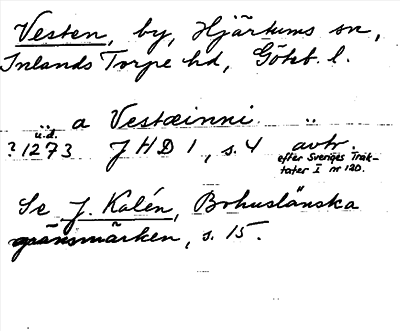 Vesten, by, Hjärtums sn,
Inlands Torpe hd, Göteb. l.
a Vestæinni
u.d.
? 1273 JHD 1, s. 4 avtr.
efter Sveriges Trak-
tater I nr 120.
Se J. Kalén, Bohuslänska
gränsmärken, s. 15.